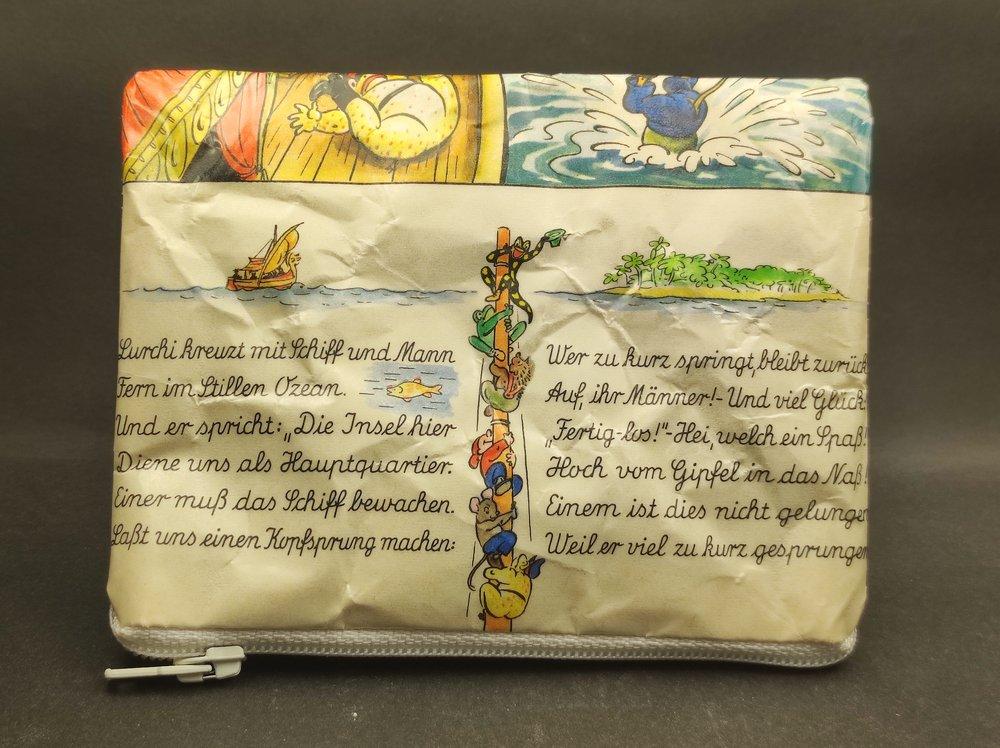 Lurchi kreuzt mit Schiff und Mann
Fern im Stillen Ozean.
Und er spricht: „Die Insel hier
Diene uns als Hauptquartier.
Einer muß das Schiff bewachen.
Laßt uns einen Kopfsprung machen:
Wer zu kurz springt, bleibt zurück
Auf, ihr Männer!- Und viel Glück!
„Fertig-los!"-Hei, welch ein Spaß!
Hoch vom Gipfel in das Naß!
Einem ist dies nicht gelungen
Weil er viel zu kurz gesprungen